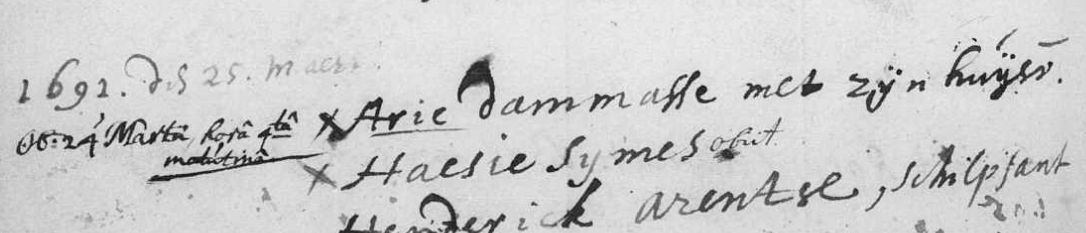 1691. d: 25. Maert
Ob: 24 Martii, horâ 4tâ
matutinâ
x Arie dammasse met zÿn huÿsv.
x Haesie Symes obiit
Henderick arentse, schilpsant